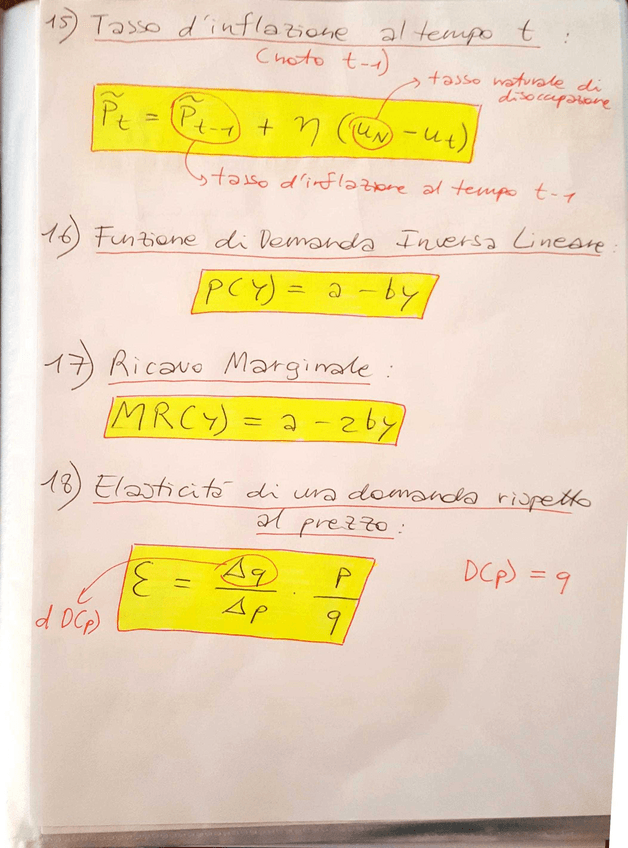 15) Tasso d'inflazione al tempo t :
(noto t-1)
tasso naturale di
disoccupazione
P̃t = P̃t-1 + η (uN - ut)
tasso d'inflazione al tempo t-1
16) Funzione di Domanda Inversa Lineare :
P(Y) = a - by
17) Ricavo Marginale :
MR(Y) = a - 2by
18) Elasticità di una domanda rispetto
al prezzo :
Ɛ = Δq/Δp · P/q
D(p) = q
d D(p)